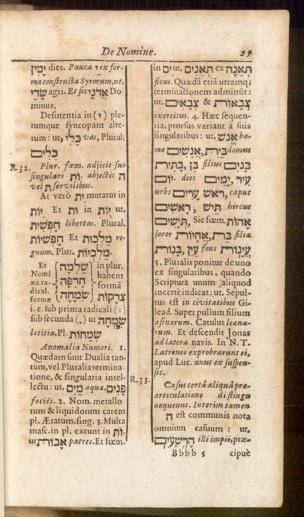 De Nomine. 29
ימין dies. Pauca י ex for-
ma constructa Syrorum, ut,
שדי agri. Et sic אדני Do
minus.
Desinentia in (י) ple-
rumque syncopant alte-
rum: ut, כלי vas, Plural.
כלים
R. 31. Plur. fœm. adjicit suo
singulari ות. abjectis ה
vel ת servilibus.
At verò ית mutatur in
יות Et ות in יות, ut,
חפשית libertas. Plural.
חפשיות Et מלכות re-
gnum, Plur. מלכיות.
Et
Nomi
nara-
dical.
formæ
שלמה
חרפה
שמחה
in plur.
habent
formã
צדקות
i. e. sub prima radicali (:)
sub secunda (ָ) ut שמחה
lætitia, Pl. שמחות.
Anomalia Numeri. 1.
Quædam sunt Dualia tan-
tum, vel Pluralia termina-
tione, & singularia intel-
lectu: ut, מים aquæ, פנים
faciès. 2. Nom. metallo-
rum & liquidorum carent
pl. Ætatum, sing. 3. Multa
masc. in pl. exeunt in ות
ut אבות patres. Et fœm.
in ים ut תאנים ex תאנה
ficus. Quædã etiã utramq;
terminationem admittũt:
ut, צבאים & צבאות
exercitus. 4. Hæc sequen-
tia, prorsus variant à suis
singularibus: ut, אנש ho-
mo אנשים, בית domus
בתים, בן filius בנים
יום dies ימים, עיר
urbs ערים, ראש caput
ראשים, תיש hircus
תישים, Sic fœm. אחות
soror אחיות, בת filia
בנות, עין fons עינות
5. Pluralis ponitur de uno
ex singularibus, quando
Scriptura unum (aliquod
incertè indicat: ut, Sepul-
tus est in civitatibus Gi-
lead. Super pullum filium
asinarum. Catulus leæna-
rum. Et descendit Jonas
ad latera navis. In N. T.
Latrones exprobrarunt ei,
apud Luc. unus ex suspen-
sis.
R. 33. Casus certâ aliquâ præ-
articulatione distingui
nequeunt. Interim tamen
ה est communis nota
omnium casuum: ut,
הרשעים illi impii, præ-
Bbbb 5 cipuè